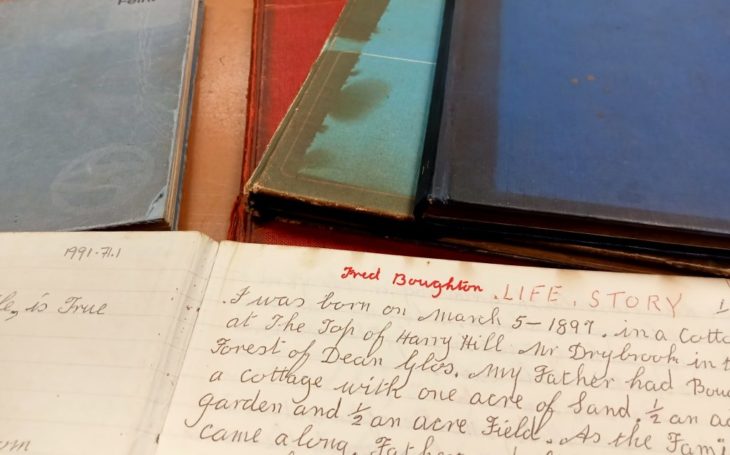 1991.71.1
is True
Fred Boughton. LIFE. STORY
I was born on March 5-1897. in a Cotta
at The Top of Harry Hill Nr Drybrook in t
Forest of Dean Glos. My Father had Bou
a cottage with one acre of Land. ½ an ac
garden and ½ an acre Field. As the Fami
came along. Father